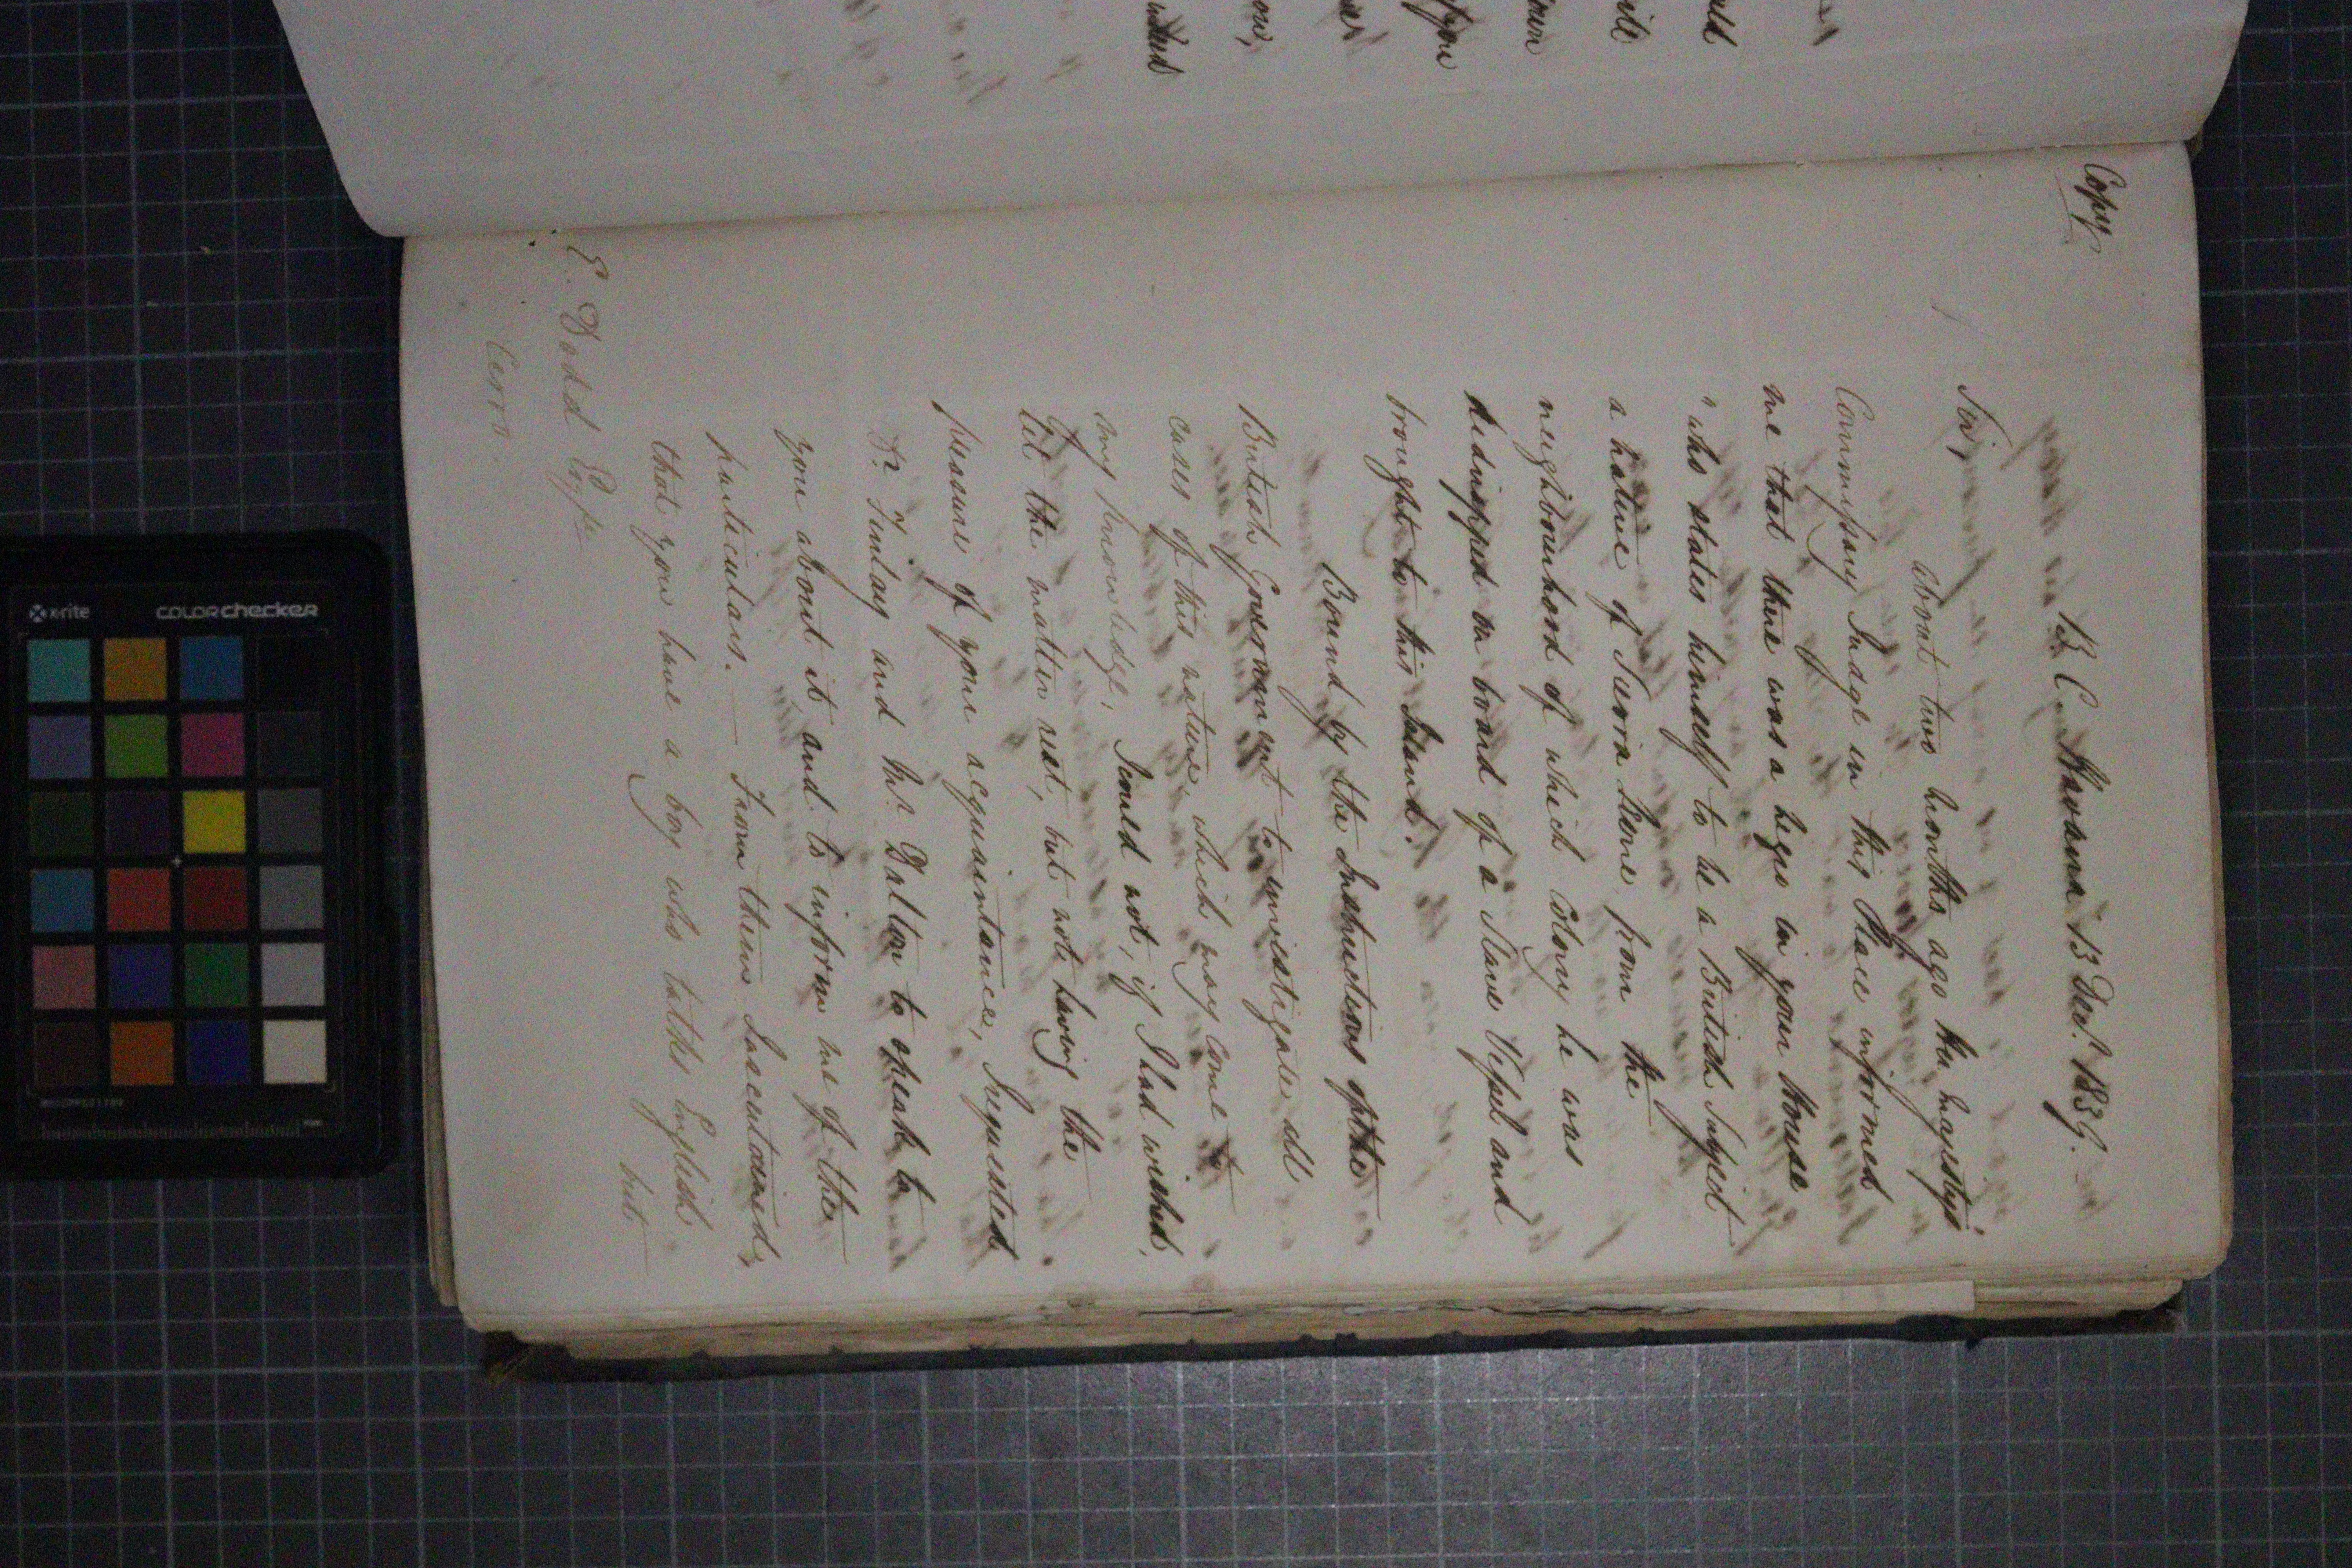 Copy
B. C. Havana 13 Decr. 1839.
Sir,
About two months ago Her Majesty's
Commissary Judge in this Place informed
me that there was a negro in your House
"who states himself to be a British Subject
a native of Sierra Leone from the
neighbourhood of which Colony he was
kidnapped on board of a Slave Vessel and
brought to this Island.
Bound by the Instructions of the
British Government to investigate all
cases of this nature, which may come to
my knowledge, I could not, if I had wished,
let the matter rest, but not having the
pleasure of your acquaintance, I requested
Dr. Finlay and Mr. Dalton to speak to
you about it, and to inform me of the
particulars. — From them I ascertained,
that you have a boy who talks English
but
E. Dodd Esqre
Cerro.
ould
upon
x-rite
colorchecker